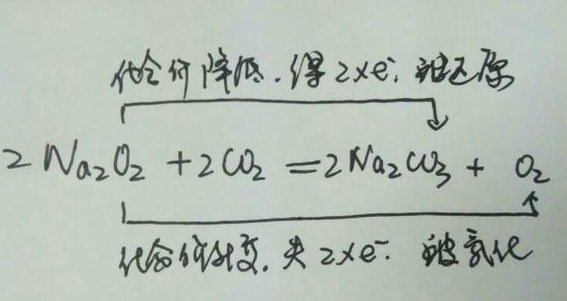 化合价降低.得2×e⁻.被还原
2Na₂O₂+2CO₂=2Na₂CO₃+O₂
化合价改变.失2×e⁻.被氧化